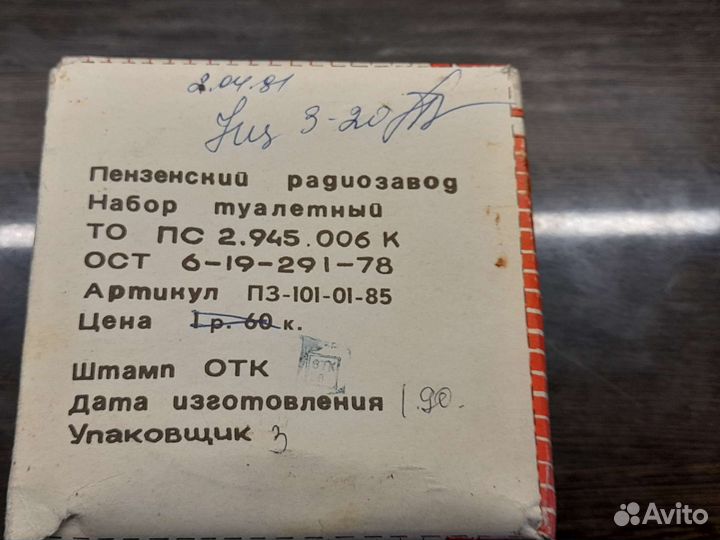 2.04.91
Уц 3-20
Пензенский радиозавод
Набор туалетный
ТО ПС 2.945.006 К
ОСТ 6-19-291-78
Артикул ПЗ-101-01-85
Цена 1 р. 60 к.
Штамп ОТК ОТК
Дата изготовления 1.90.
Упаковщик 3
Avito